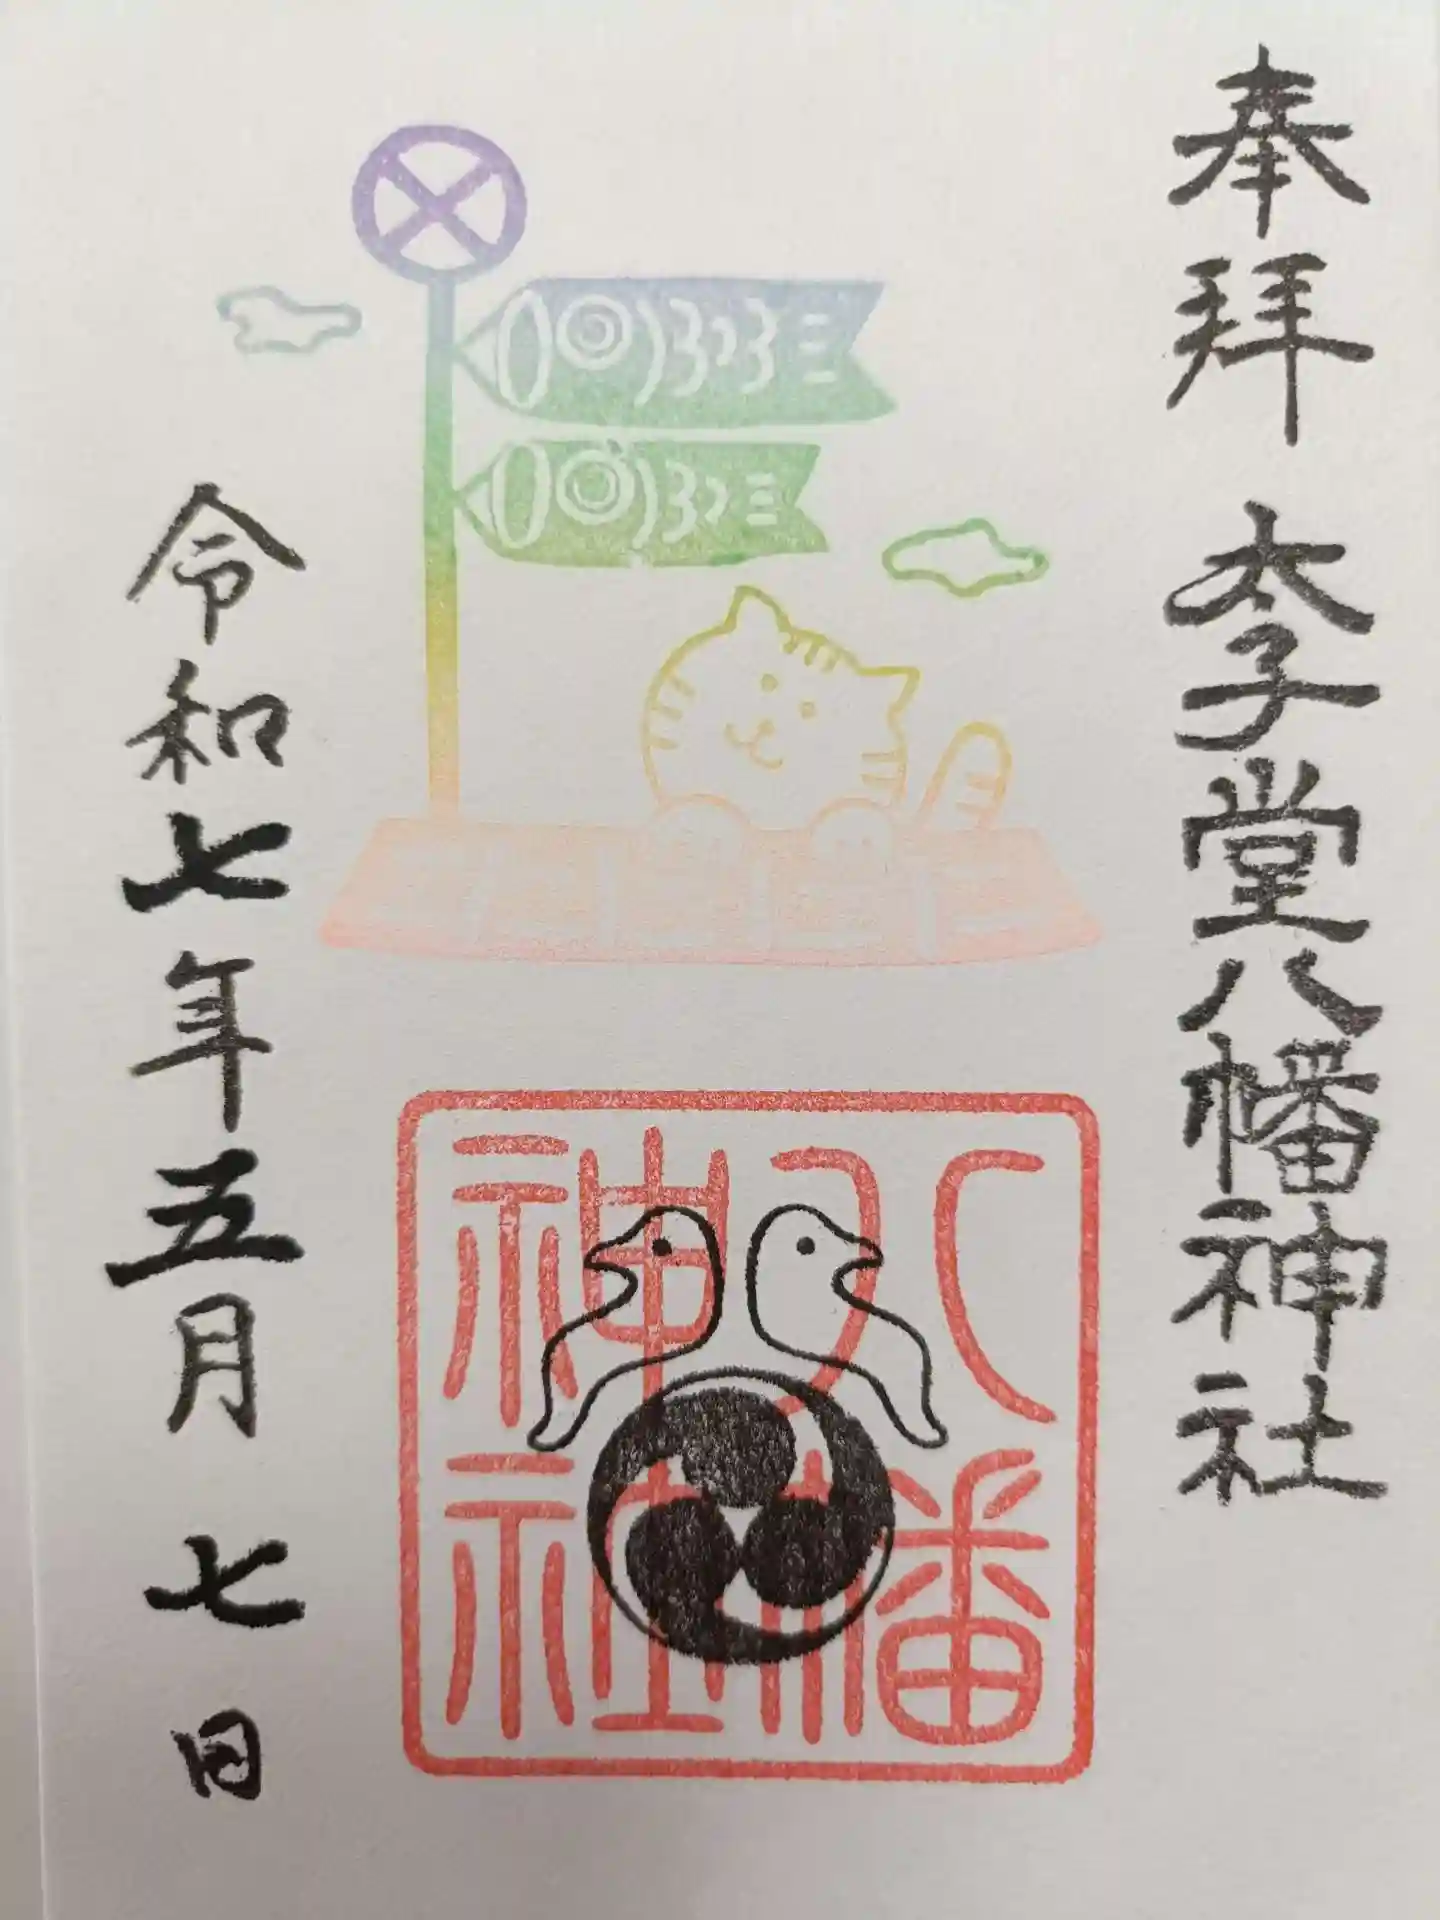 奉拝
太子堂八幡神社
八幡
神社
令和七年五月七日